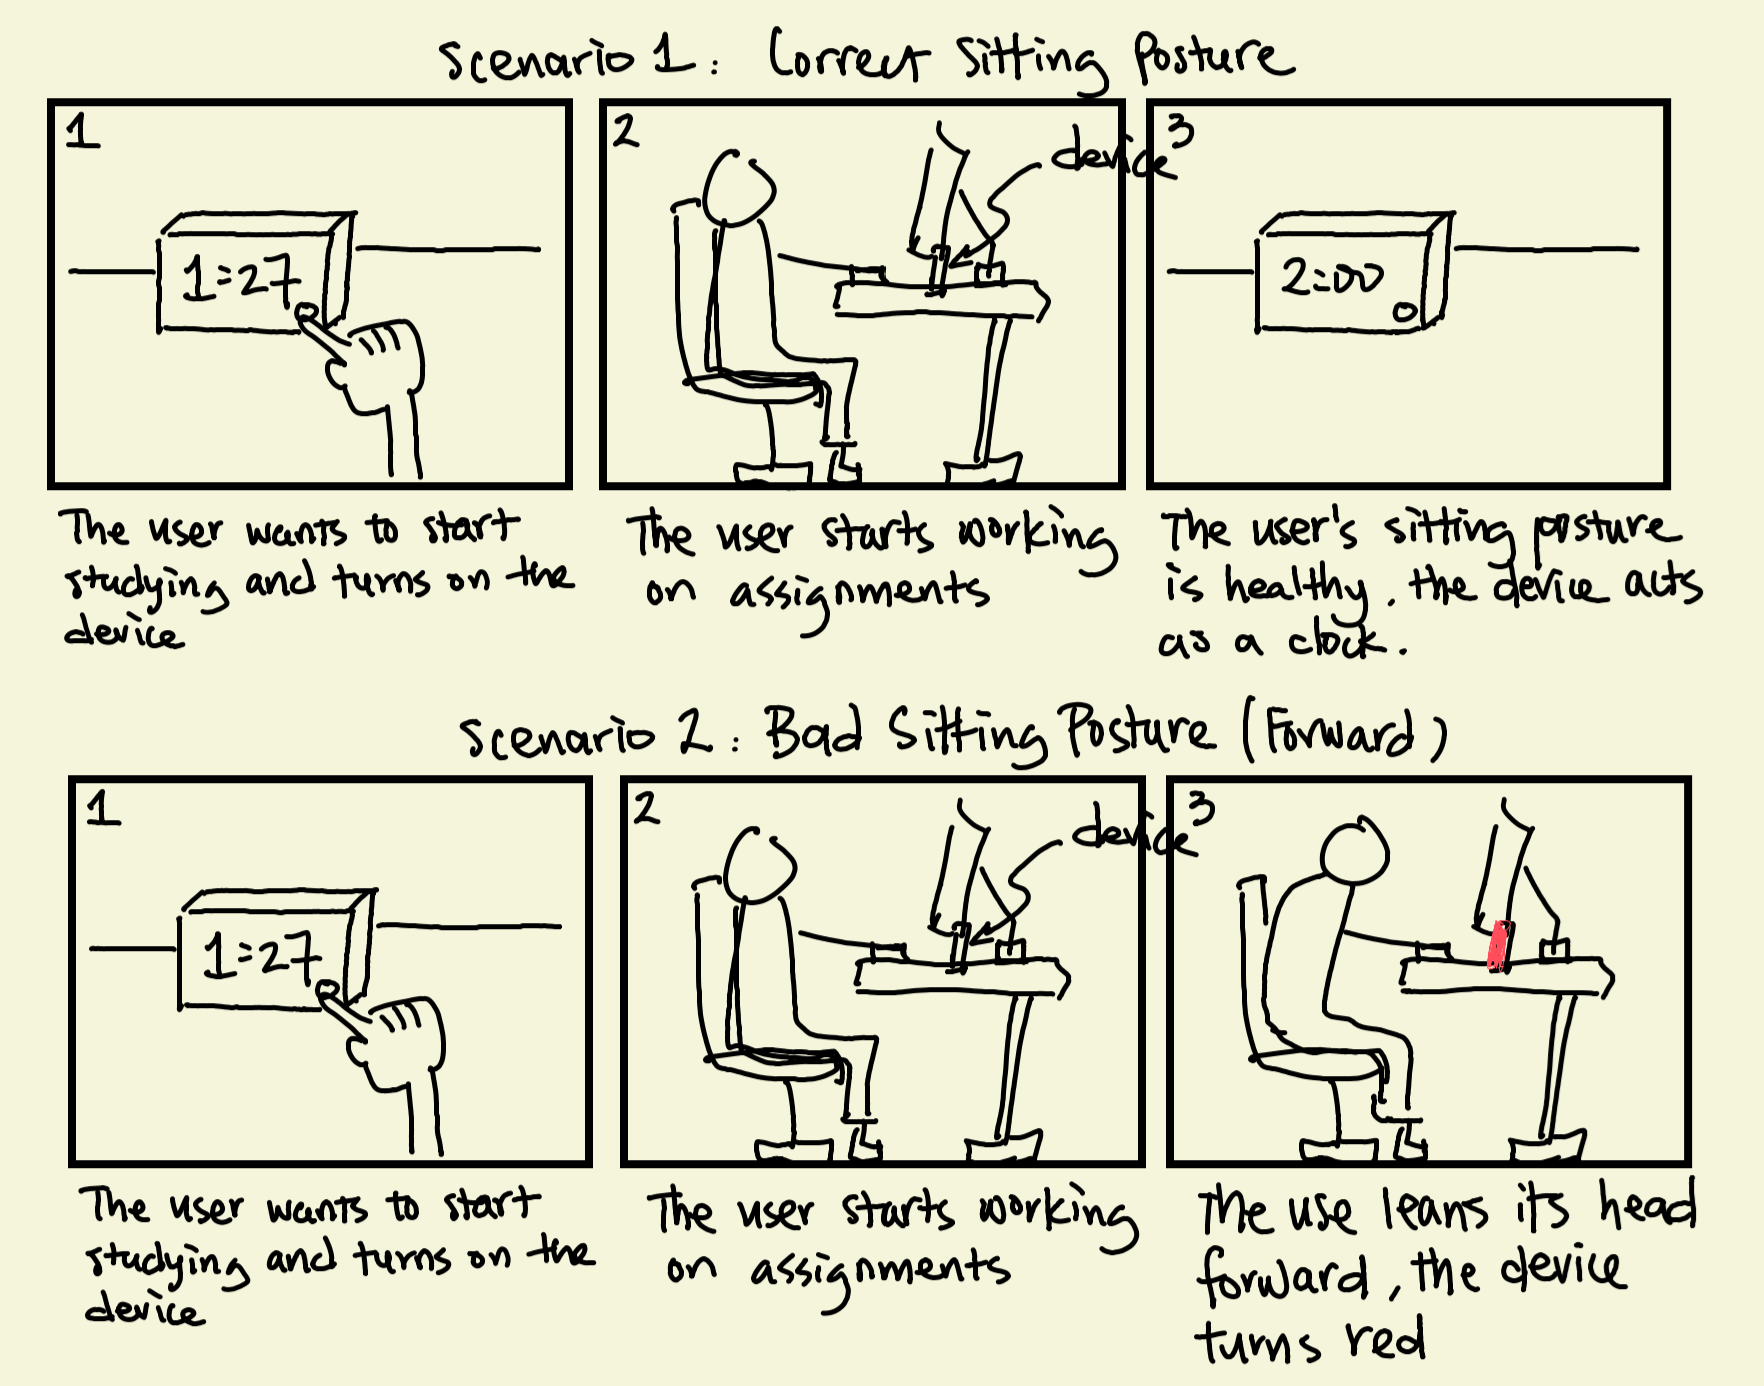 Scenario 1: Correct Sitting Posture
1
2
device
3
1:27
2:00
The user wants to start
studying and turns on the
device
The user starts working
on assignments
The user's sitting posture
is healthy. the device acts
as a clock.
Scenario 2: Bad Sitting Posture (Forward)
1
2
device
3
1:27
The user wants to start
studying and turns on the
device
The user starts working
on assignments
The use leans its head
forward, the device
turns red